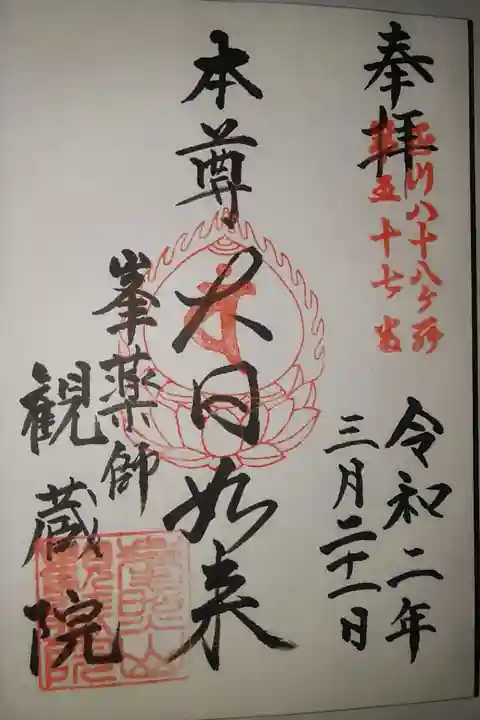 奉拝
川八十八ヶ所
第五十七番
令和二年
三月二十一日
本尊大日如来
峯薬師
観蔵院